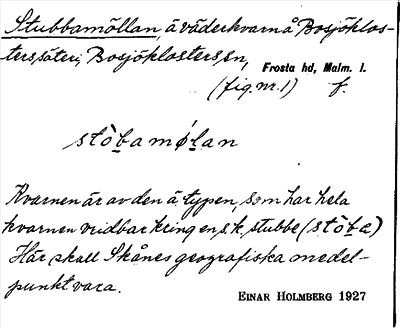 Stubbamöllan, ä väderkvarn å Bosjöklos-
ters säteri, Bosjöklosters sn,
Frosta hd, Malm. l.
(fig. nr. 1) f.
stòbamǿlan
Kvarnen är av den ä. typen, som har hela
kvarnen vridbar kring en s.k. stubbe (stòbæ)
Här skall Skånes geografiska medel-
punkt vara.
EINAR HOLMBERG 1927